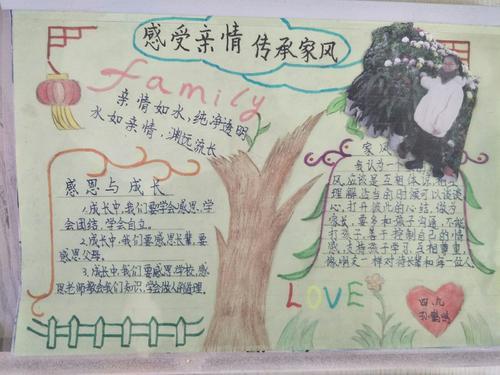 感受亲情 传承家风
family
亲情如水,纯净透明
水如亲情,渊远流长
感恩与成长
1.成长中,我们要学会感恩,学
会团结,学会自立。
2.成长中,我们要感恩长辈,要
感恩父母。
3.成长中,我们要感恩学校,感
恩老师教会我们知识,学会做人的道理。
家风
我认为一个
风应该是互相体谅
理解适当的时候可以谈谈
心,打开孩儿的心结,做为
家长,要多和孩子沟通,不能
打孩子,善于控制自己的情
绪,支持孩子学习,互相尊重,
像朋友一样对待长辈和每一位人
LOVE
四、九